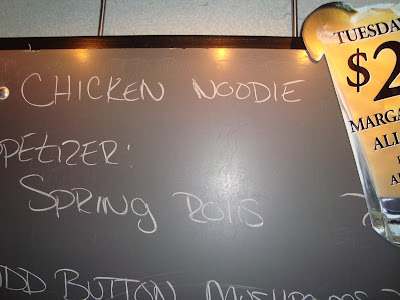 CHICKEN NOODlE
PPETIZER:
SPRING ROllS
ADD BUTTON MUSHROOMS
TUESDA
$2
MARGA
AL